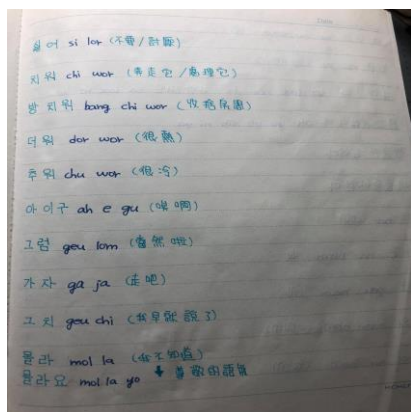 싫어 si lor (不要/討厭)
치워 chi wor (弄走它/處理它)
방 치워 bang chi wor (收拾房間)
더워 dor wor (很熱)
추워 chu wor (很冷)
아이구 ah e gu (唉啊)
그럼 geu lom (當然啦)
가자 ga ja (走吧)
그치 geu chi (我早就說了)
몰라 mol la (我不知道)
몰라요 mol la yo 尊敬的語氣